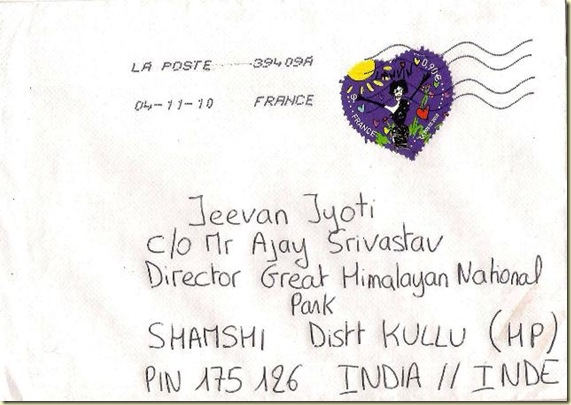 LA POSTE 39409A
04-11-10 FRANCE
LANVIN 0,90€
FRANCE
Jeevan Jyoti
c/o Mr Ajay Srivastav
Director Great Himalayan National
Park
SHAMSHI Distt KULLU (HP)
PIN 175 126 INDIA // INDE